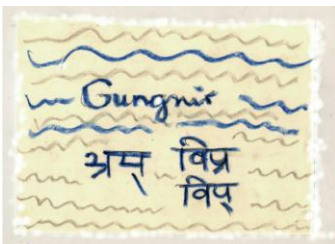 Gungnir
विप्र
विप्